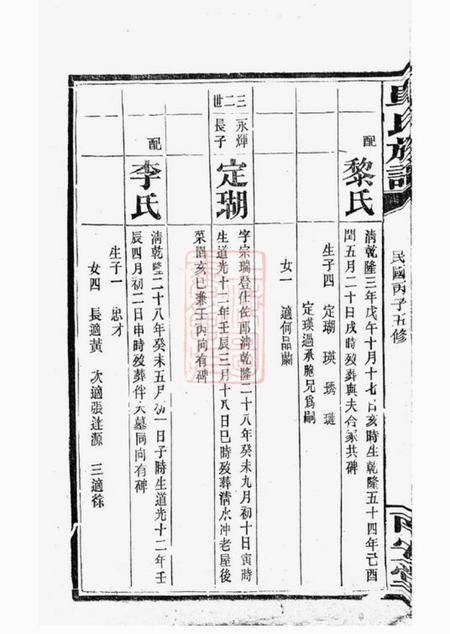 氏族譜
民國丙子五修
配
黎氏
清乾隆三年戊午十月十七日亥時生乾隆五十四年己酉
閏五月二十日戌時歿葬與夫合冢共碑
生子四 定瑚 瑛 琇 璉
定瑛過承胞兄爲嗣
女一 適何品蘭
三二世
永輝
長子
定瑚
字宗瑞登仕佐郎清乾隆二十八年癸未九月初十日寅時
生道光十二年壬辰三月十八日巳時歿葬清水冲老屋後
菜園亥巳兼壬丙向有碑
配
李氏
清乾隆二十八年癸未五月初一日子時生道光十二年壬
辰四月初二日申時歿葬伴夫墓同向有碑
生子一 忠才
女四 長適黃 次適張達源 三適徐